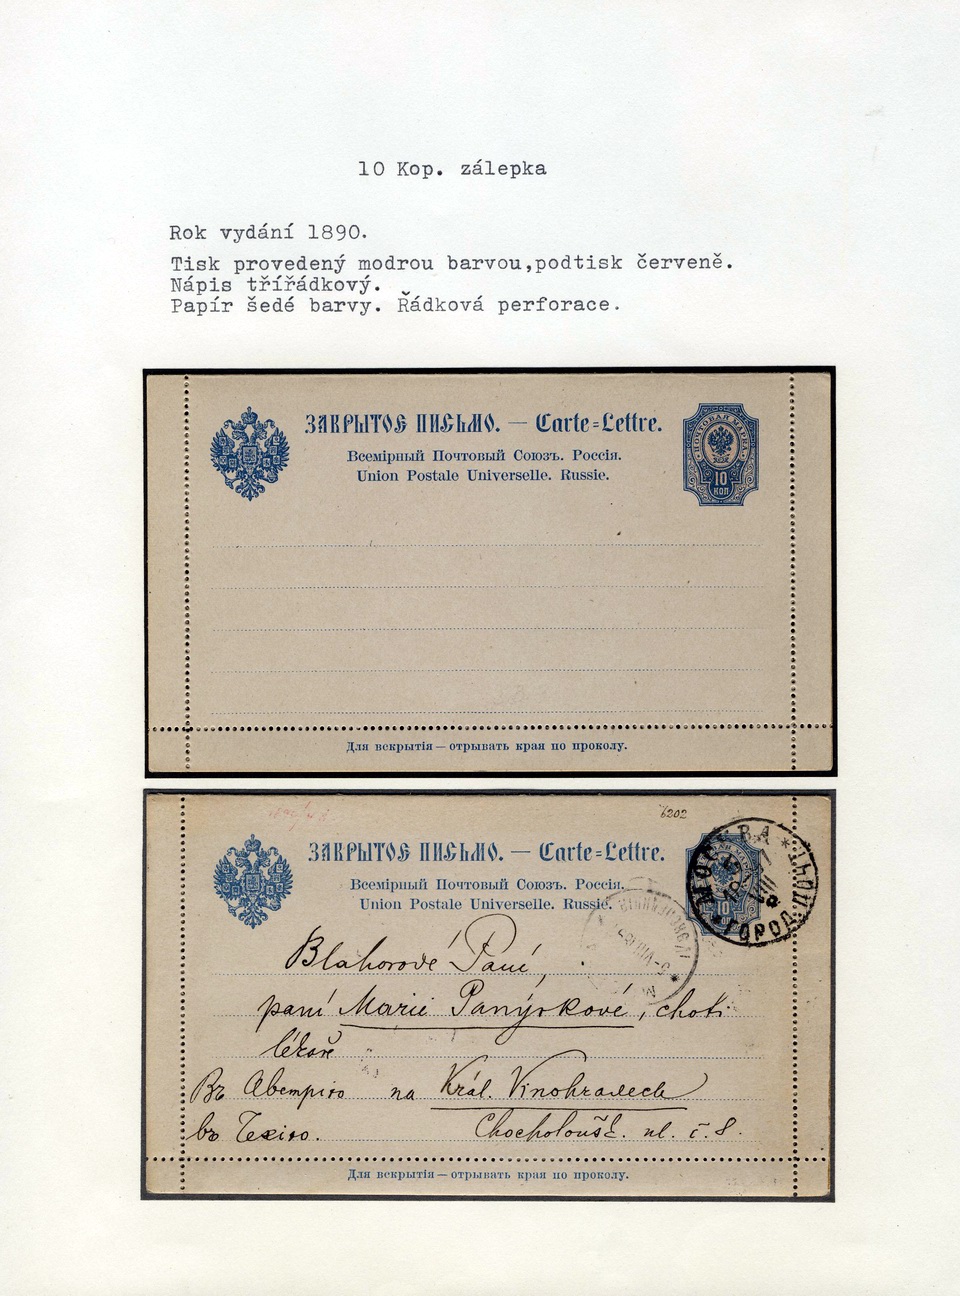 10 Kop. zálepka
Rok vydání 1890.
Tisk provedený modrou barvou,podtisk červeně.
Nápis třířádkový.
Papír šedé barvy. Řádková perforace.
ЗАКРЫТОЕ ПИСЬМО. — Carte=Lettre.
Всемірный Почтовый Союзъ. Россія.
Union Postale Universelle. Russie.
ПОЧТОВАЯ МАРКА
10
КОП
Для вскрытія — отрывать края по проколу.
6202
ЗАКРЫТОЕ ПИСЬМО. — Carte=Lettre.
Всемірный Почтовый Союзъ. Россія.
Union Postale Universelle. Russie.
10
МОСКВА
ГОРОД. ПОЧТ
VIII
Blahorodé Paní,
paní Marii Panýrkové, choti
lékaře
Въ Австрію na Král. Vinohradech
въ Чехію. Chocholoušk. ul. č. 8.
Для вскрытія — отрывать края по проколу.